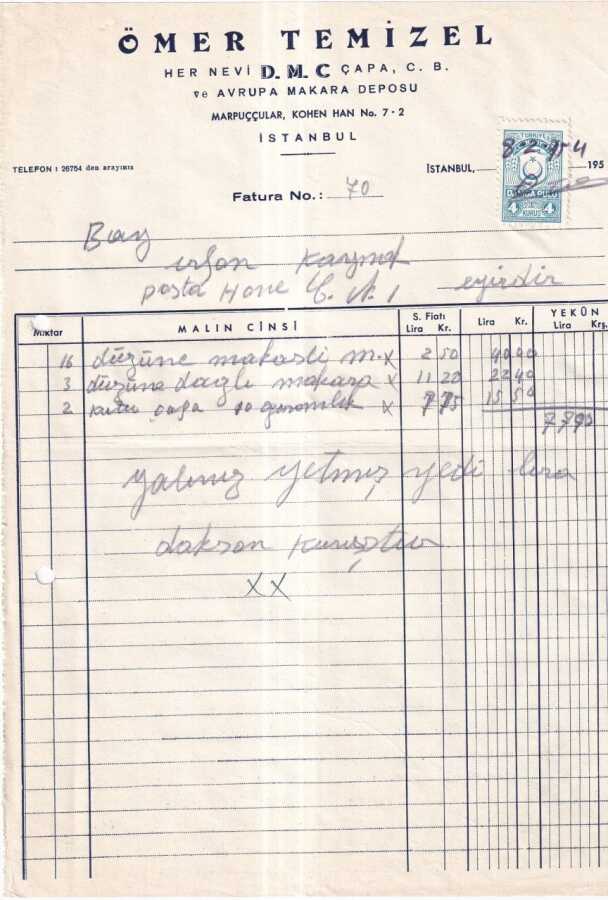 ÖMER TEMİZEL
HER NEVİ D.M.C ÇAPA, C. B.
ve AVRUPA MAKARA DEPOSU
MARPUÇÇULAR, KOHEN HAN No. 7 - 2
İSTANBUL
TELEFON : 26754 den arayınız
İSTANBUL, 8 2 954 195
TÜRKİYE
4 KURUŞ 4
Fatura No.: 70
Bay
irfan Kaymak
Posta Hane C. N. 1 eğirdir
Miktar MALIN CİNSİ S. Fiatı Lira Kr. Lira Kr. YEKÛN Lira Krş.
16 düzüne makasli m. x 2 50 40 00
3 düzüne dağlı makara x 11 20 22 40
2 kutu çapa 10 gramlık x 7 75 15 50
77 90
yalnız yetmiş yedi lira
doksan kuruştur
XX